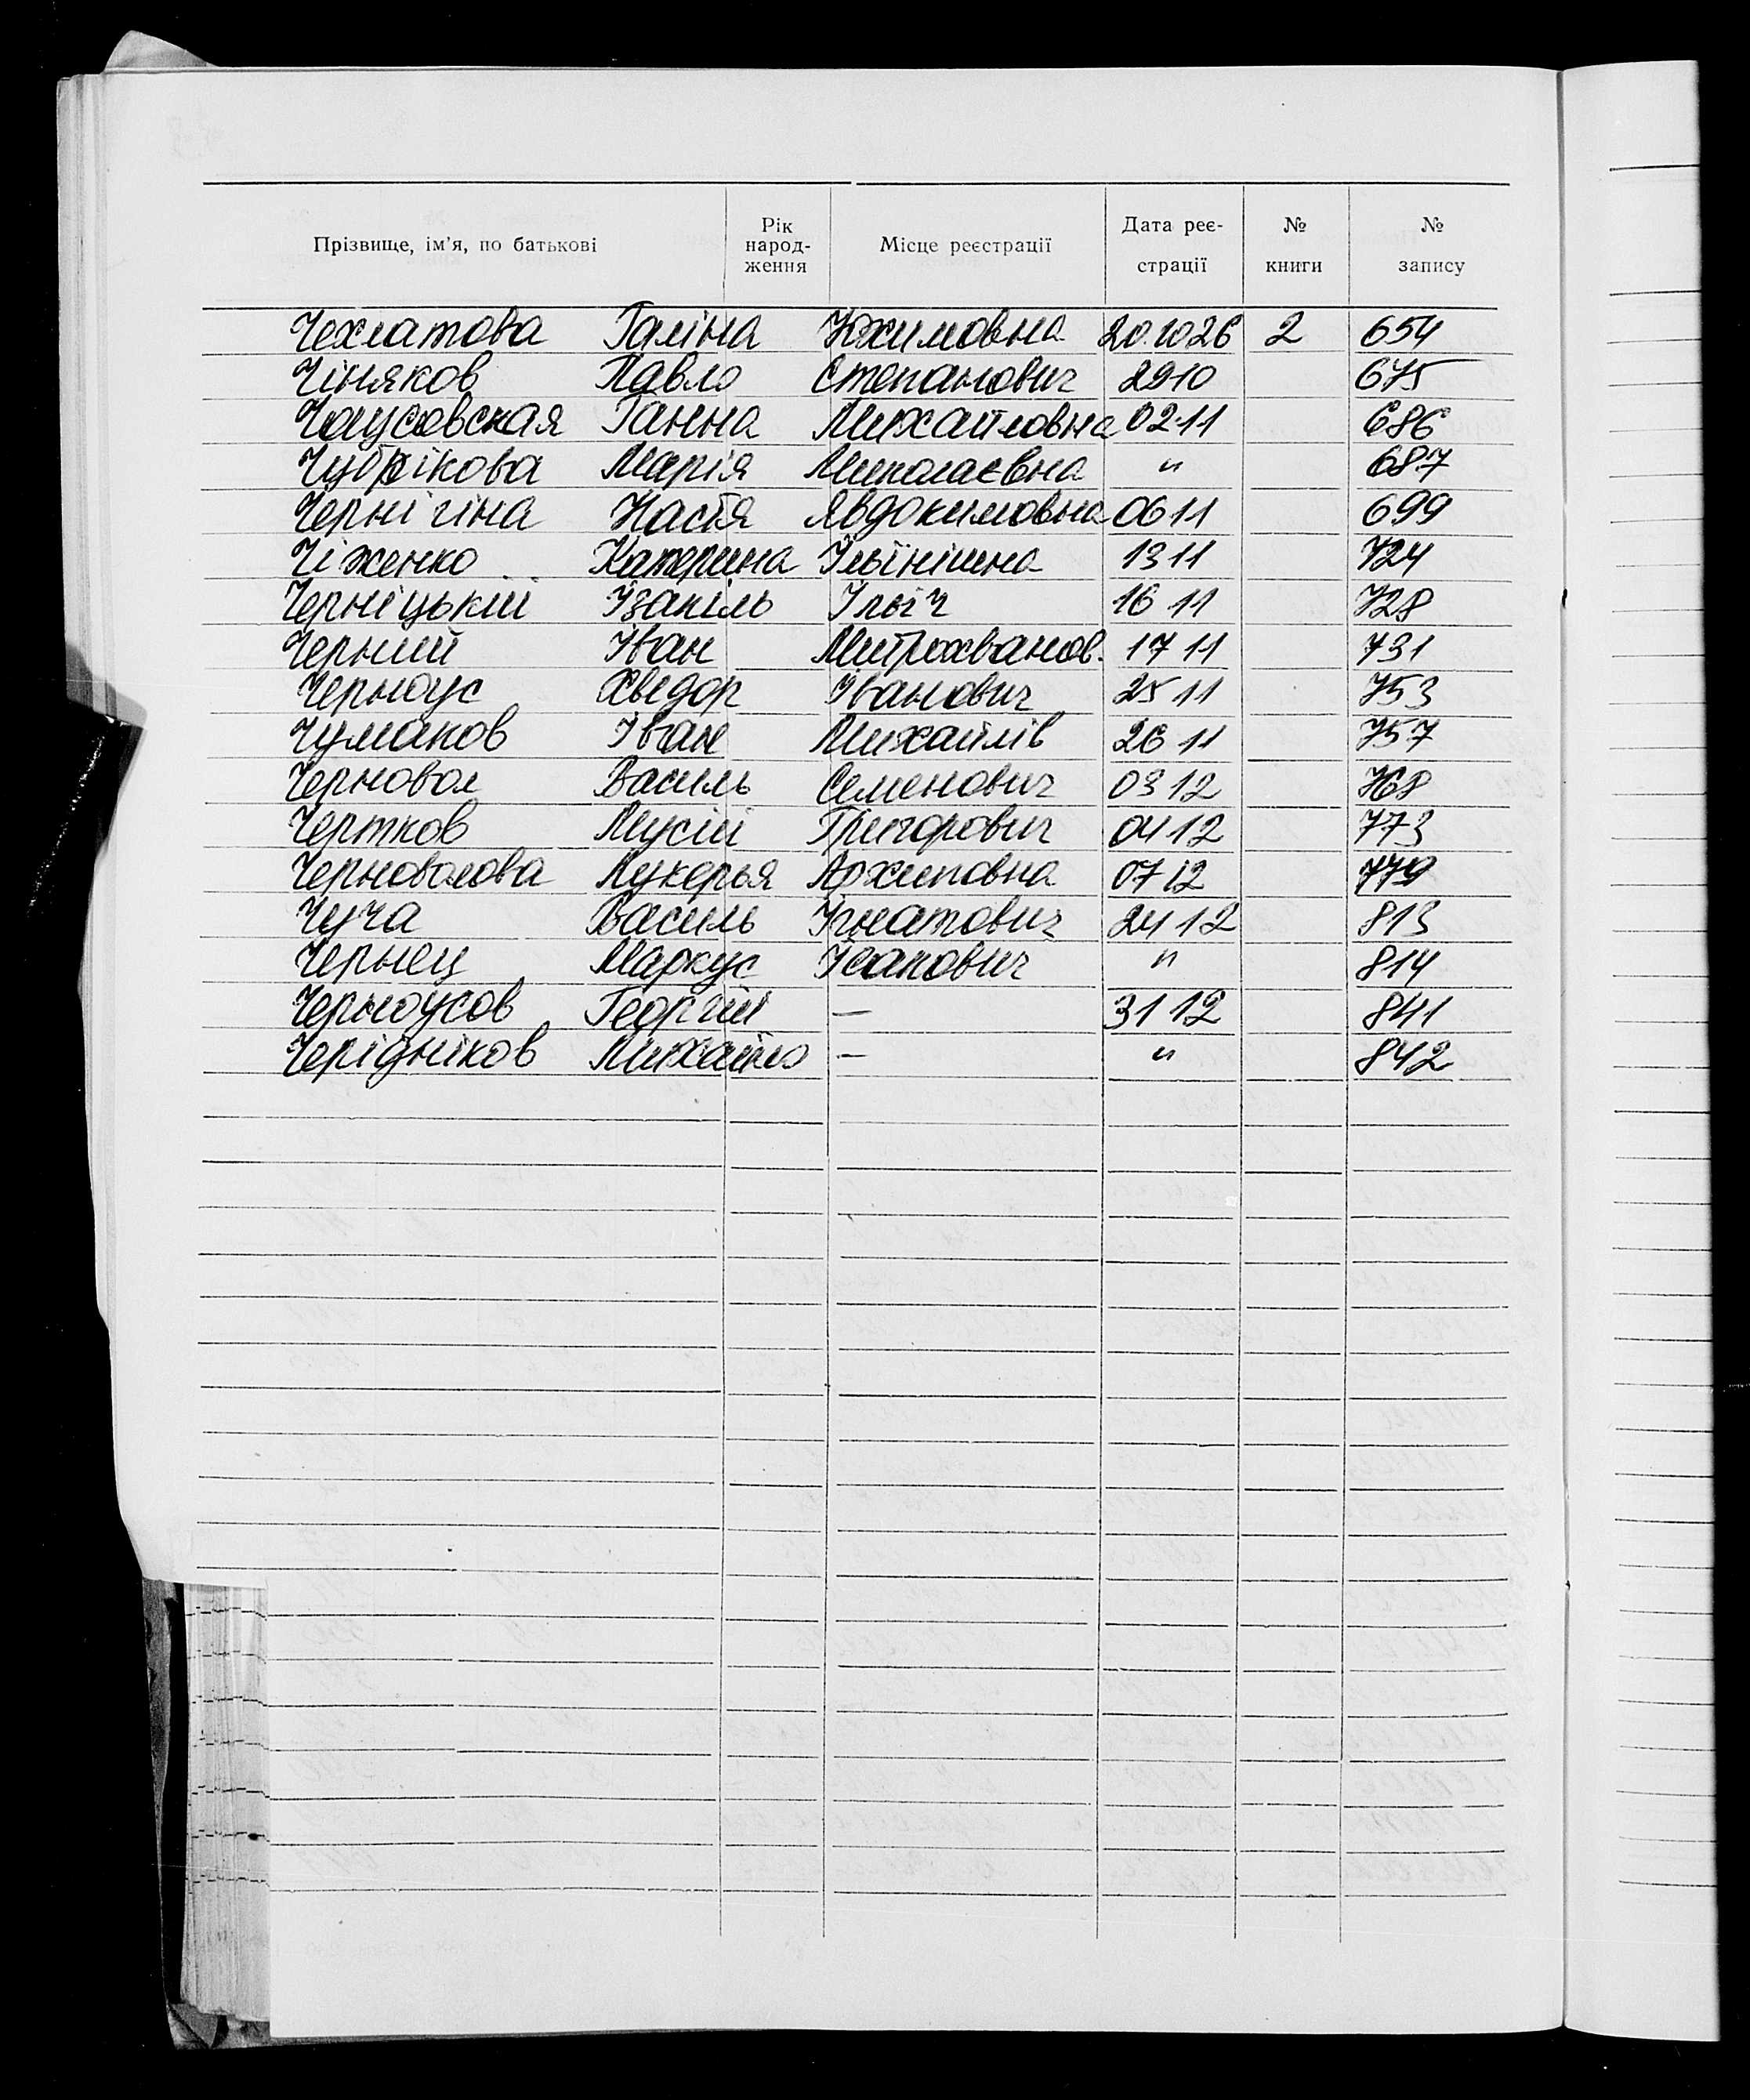 Прізвище, ім'я, по батькові Рік народ-ження Місце реєстрації Дата реє-страції № книги № запису
Чехлатова Галіна Юхимовна 20.10 26 2 654
Чіняков Павло Степанович 29 10 675
Чаусовская Ганна Михайловна 02 11 686
Чубрікова Марія Миколаєвна " 687
Чернігіна Настя Явдокимовна 06 11 699
Чіженко Катерина Ільїнішна 13 11 724
Черніцький Ізакіль Ільіч 16 11 728
Черний Іван Митрохванов. 17 11 731
Черноус Хведор Іванович 25 11 753
Чумаков Іван Михайлів 26 11 757
Черновол Василь Семенович 03 12 768
Чертков Мусій Григорович 04 12 773
Черноволова Лукерья Архиповна 07 12 779
Чуча Василь Ігнатович 24 12 813
Чернец Маркус Ісакович " 814
Черноусов Георгій — 31 12 841
Черідніков Михайло — " 842